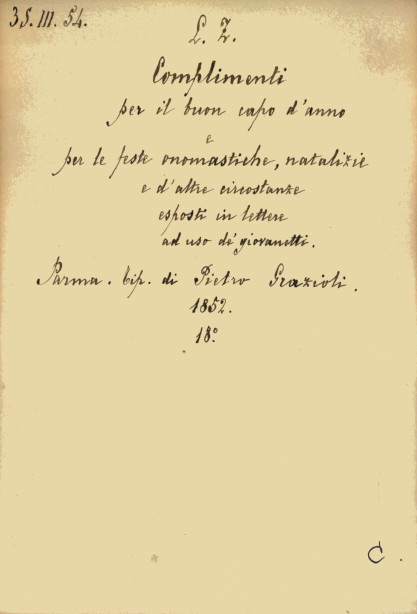 35.III.54.
L. Z.
Complimenti
per il buon capo d'anno
e
per le feste onomastiche, natalizie
e d'altre circostanze
esposti in lettere
ad uso de' giovanetti.
Parma. tip. di Pietro Grazioli.
1852.
18º
C.